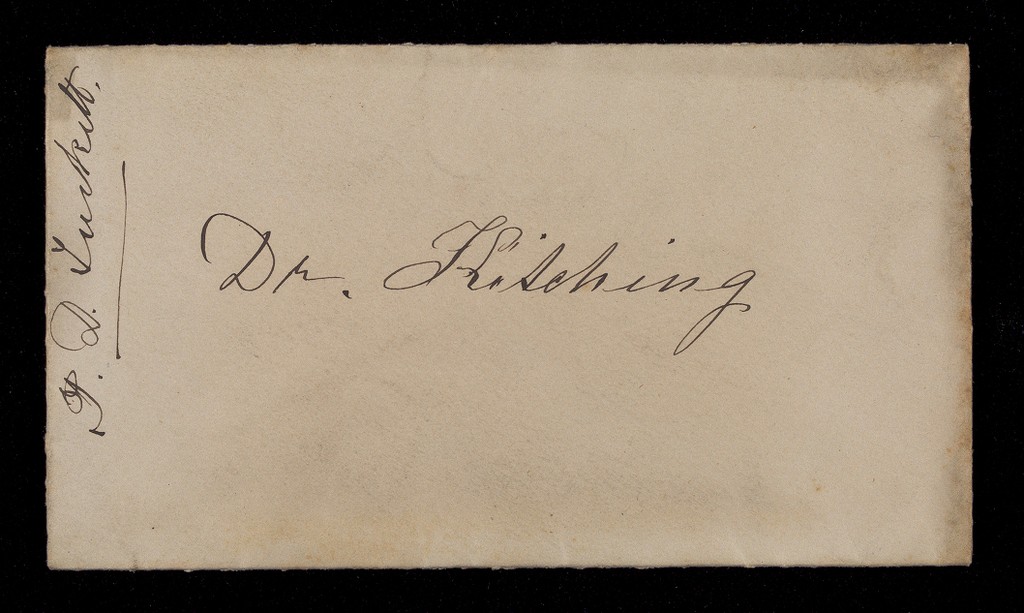 Dr. Kitching
P. D. Luckett.